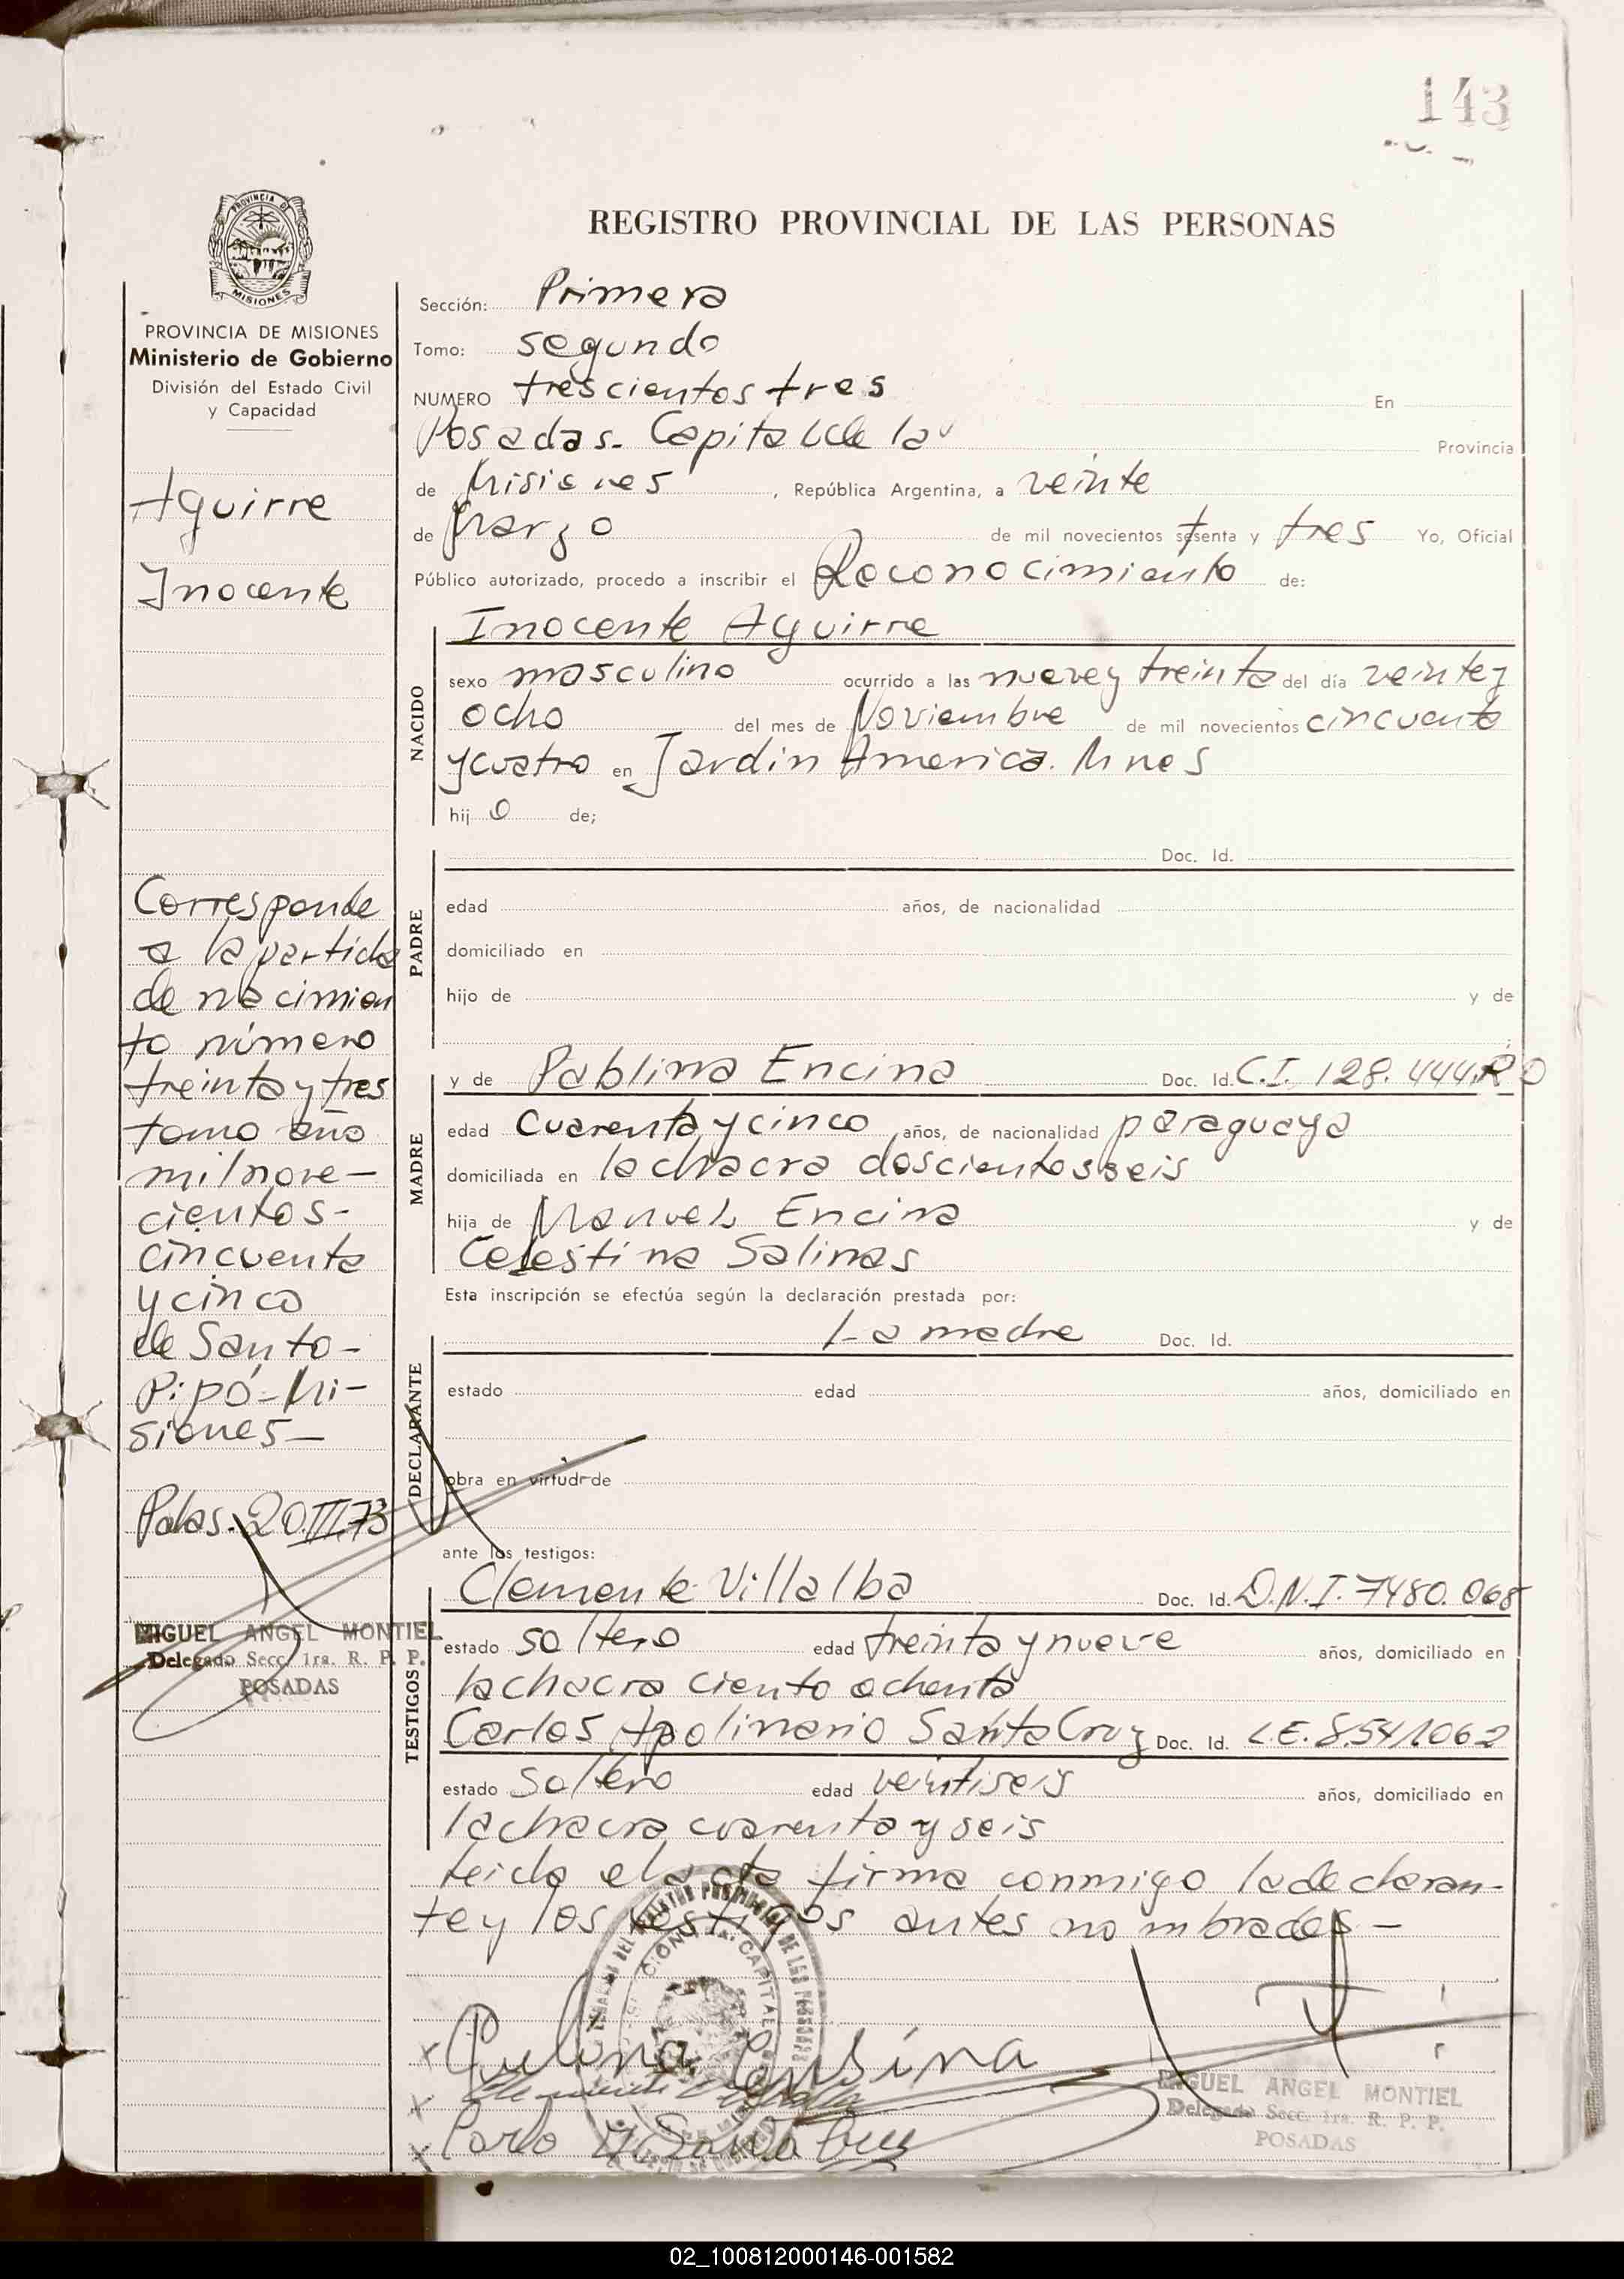 143
PROVINCIA DE
MISIONES
REGISTRO PROVINCIAL DE LAS PERSONAS
PROVINCIA DE MISIONES
Ministerio de Gobierno
División del Estado Civil
y Capacidad
Aguirre
Inocente
Corresponde
a la partida
de nacimien
to número
treinta y tres
tomo año
mil nove-
cientos-
cincuenta
y cinco
de Santo-
Pipó-Mi-
siones-
Pdas. 20.III.73
MIGUEL ANGEL MONTIEL
Delegado Secc. 1ra. R. P. P.
POSADAS
Sección: Primera
Tomo: segundo
NUMERO trescientos tres En
Posadas. Capital de la Provincia
de Misiones, República Argentina, a veinte
de Marzo de mil novecientos setenta y tres Yo, Oficial
Público autorizado, procedo a inscribir el Reconocimiento de:
NACIDO
Inocente Aguirre
sexo masculino ocurrido a las nueve y treinta del día veinte y
ocho del mes de Noviembre de mil novecientos cincuenta
y cuatro en Jardin America. Mnes
hijo de;
PADRE
Doc. Id.
edad años, de nacionalidad
domiciliado en
hijo de y de
MADRE
y de Pablina Encina Doc. Id. C.I. 128.444
edad cuarenta y cinco años, de nacionalidad paraguaya
domiciliada en la chacra doscientos seis
hija de Manuel Encina y de
Celestina Salinas
Esta inscripción se efectúa según la declaración prestada por:
DECLARANTE
La madre Doc. Id.
estado edad años, domiciliado en
obra en virtud de
ante los testigos:
TESTIGOS
Clemente Villalba Doc. Id. D.N.I. 7480.068
estado soltero edad treinta y nueve años, domiciliado en
la chacra ciento ochenta
Carlos Apolinario Santa Cruz Doc. Id. L.E. 8.541.062
estado soltero edad veintiseis años, domiciliado en
la chacra cuarenta y seis
Leida el acta firma conmigo la declaran-
te y los testigos antes nombrados-
MIGUEL ANGEL MONTIEL
Delegado Secc. 1ra. R. P. P.
POSADAS
02_100812000146-001582